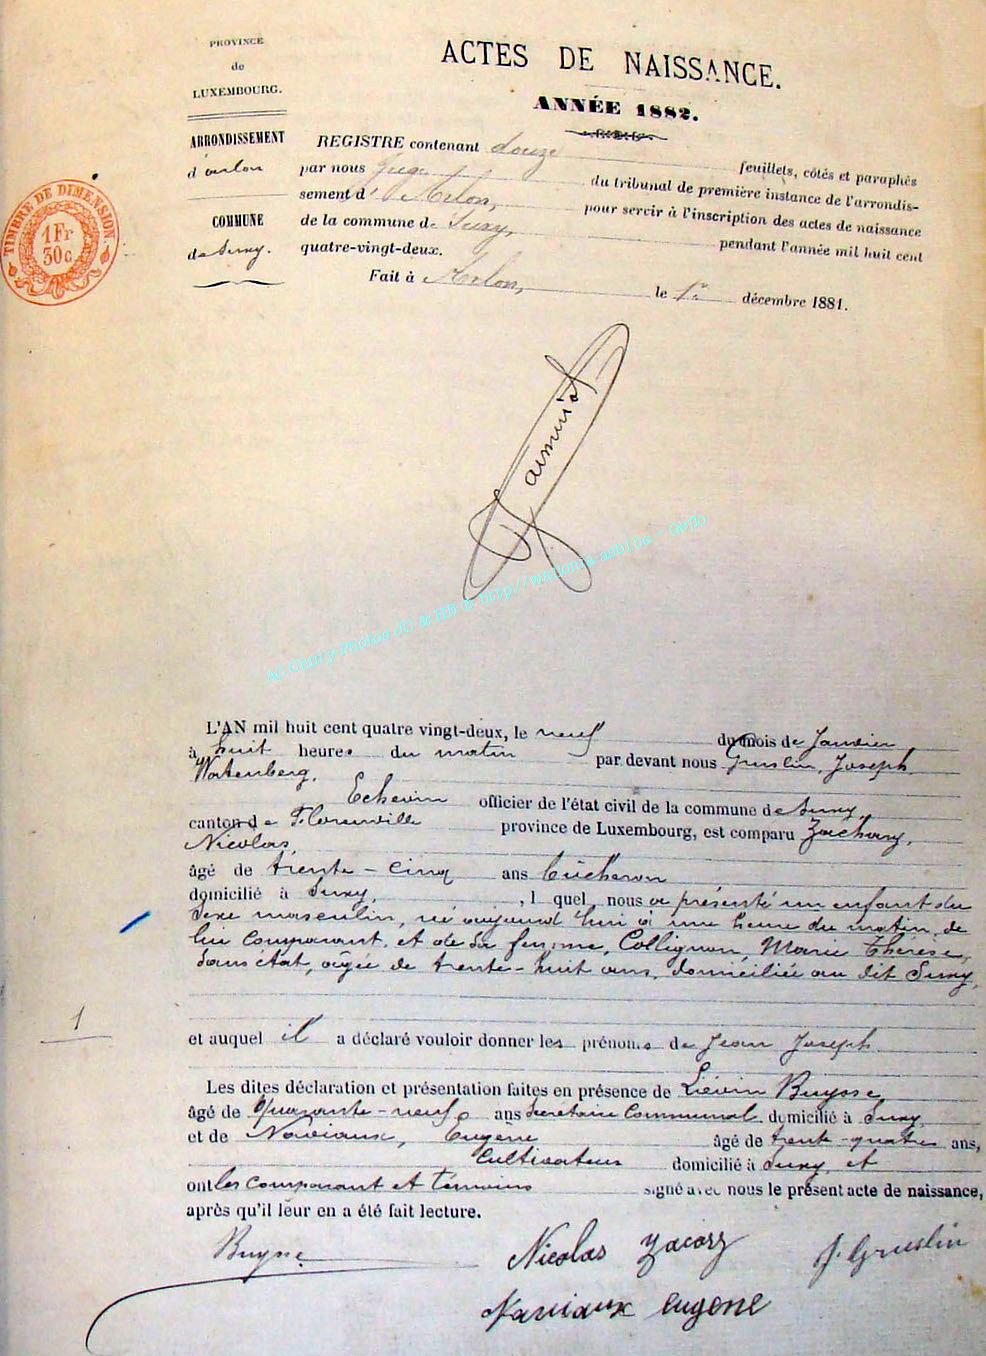 PROVINCE
de
LUXEMBOURG.
ARRONDISSEMENT
d'arlon
COMMUNE
de Suxy.
TIMBRE DE DIMENSION.
1 Fr
30 c
ACTES DE NAISSANCE.
ANNÉE 1882.
REGISTRE contenant douze feuillets, côtés et paraphés
par nous Juge du tribunal de première instance de l'arrondis-
sement d'Arlon, pour servir à l'inscription des actes de naissance
de la commune de Suxy, pendant l'année mil huit cent
quatre-vingt-deux.
Fait à Arlon, le 1er décembre 1881.
AC Chiny Photos JG & HB & http//wallonia-asbl.be - Geno
L'AN mil huit cent quatre vingt-deux, le neuf du mois de Janvier
à huit heures du matin par devant nous Gruslin, Joseph
Watenberg,
Echevin officier de l'état civil de la commune de Suxy,
canton de Florenville province de Luxembourg, est comparu Zachary,
Nicolas,
âgé de trente-cinq ans bûcheron
domicilié à Suxy, , l quel nous a présenté un enfant du
sexe masculin, né aujourd'hui à une heure du matin, de
lui comparant, et de sa femme, Collignon, Marie Thérèse,
sans état, agée de trente-huit ans, domiciliée au dit Suxy,
1
et auquel il a déclaré vouloir donner les prénoms de Jean Joseph
Les dites déclaration et présentation faites en présence de Liévin Buysse,
âgé de quarante-neuf ans Secrétaire Communal domicilié à Suxy
et de Naviaux, Eugène âgé de trente-quatre ans,
cultivateur domicilié à Suxy, et
ont les comparant et témoins signé avec nous le présent acte de naissance,
après qu'il leur en a été fait lecture.
Buysse Nicolas Zacary J. Gruslin
Naviaux eugene